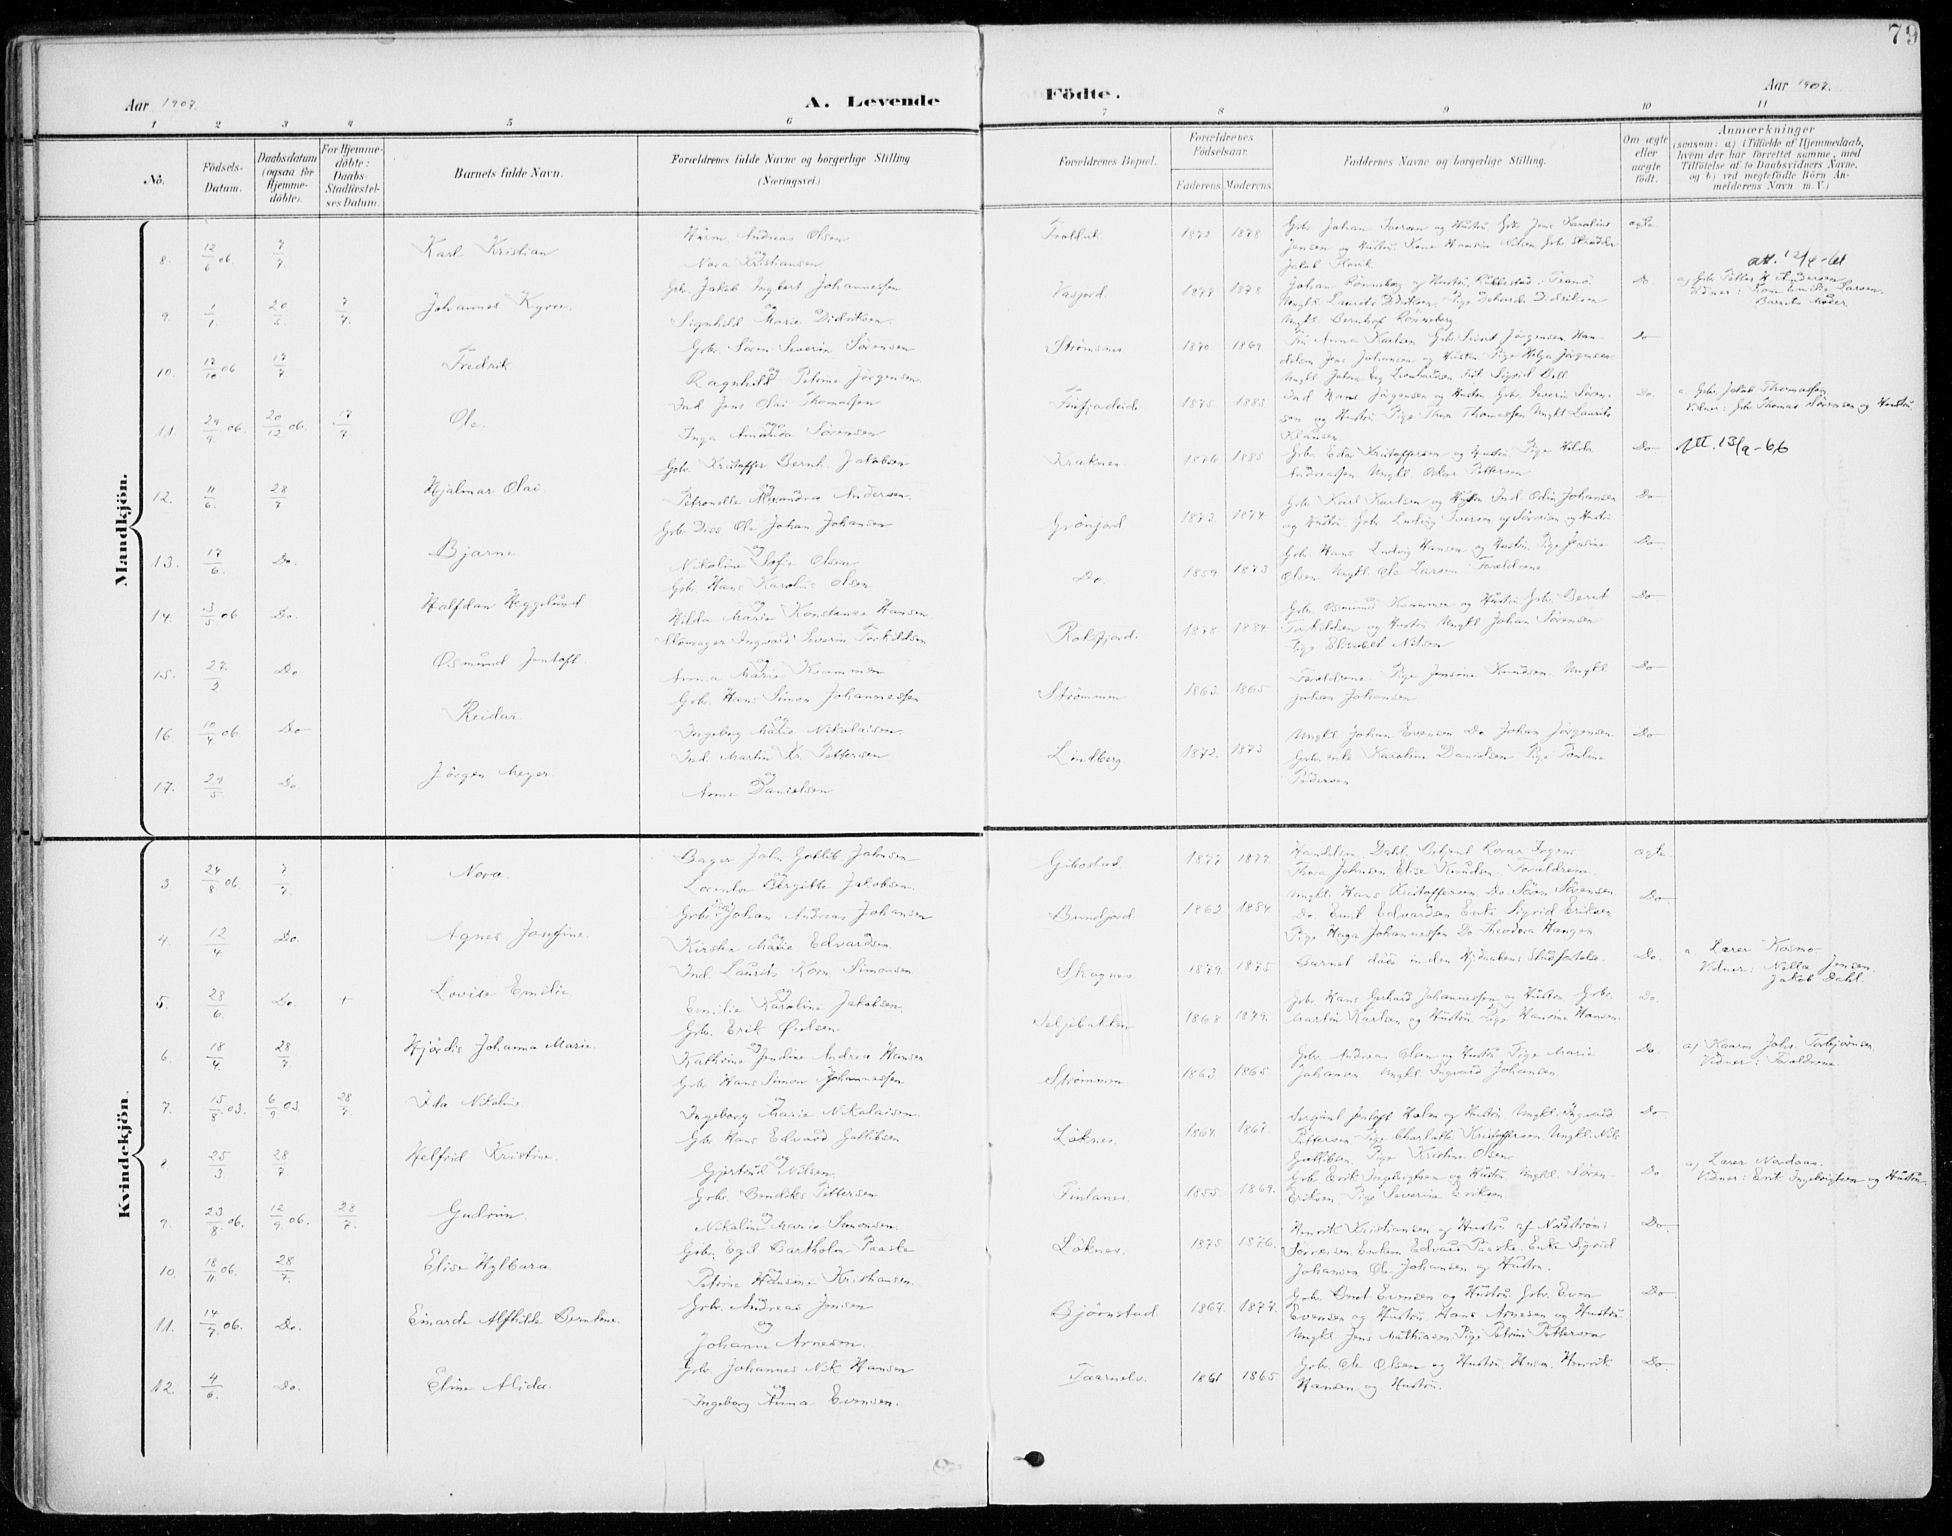 79
Aar 1907.
A. Levende
Födte.
Aar 1907.
1 2 3 4 5 6 7 8 9 10 11
No.
Födsels-Datum.
Daabsdatum (ogsaa for Hjemmedöbte).
For Hjemmedöbte: Daabs-Stadfæstelses Datum.
Barnets fulde Navn.
Forældrenes fulde Navne og borgerlige Stilling
(Næringsvei.)
Forældrenes Bopæl.
Forældrenes Födselsaar.
Faderens.
Moderens.
Faddernes Navne og borgerlige Stilling.
Om ægte eller uægte födt.
Anmærkninger
(saasom: a) i Tilfælde af Hjemmedaab, hvem der har forrettet samme, med Tilföielse af to Daabsvidners Navne, og b) ved uægtefödte Börn Anmelderens Navn m. V.)
Mandkjön.
8. 12/6 06. 7/7. Karl Kristian
Andreas Olsen
og
Nora Kristiansen
1872 1878
Gbr. Johan Iversen og Hustru Gbr. Jens Karolius
Jensen og Hustru
ægte
att. 12/4-61
9. 1/1. 20/5. 7/7. Johannes Kyvre.
Gbr. Jakob Ingbert Johannessen
og
Signhild Marie Didriksen.
Vasjord. 1877 1878
Johan Rönneberg og Hustru
Ungkl. Bernhof Rönneberg
Do.
Vidner: Kone Emilie Larsen.
Barnets Moder
10. 17/10 06 17/7 Fredrik
Gbr. Sören Severin Sörensen
og
Ragnhild Petrine Jörgensen.
Strömsnes 1870. 1869
Jens Johansen og Hustru Pige Helga Jörgensen
Do
11. 29/9. 06. 20/12 06. 17/7 Ole.
Ind. Jens Olai Thomassen
og
Inga Amanda Sörensen
1875 1883
Ind Hans Jörgensen og Hustru Gbr. Severin Sören-
sen og Hustru Pige Thea Thomassen Ungkl Laurits
Klausen.
Do.
a. Gbr. Jakob Thomassen
Vidner: Gbr. Thomas Sörensen og Hustru
12. 11/6. 28/7 Hjalmar Olai.
Gbr. Kristoffer Bernh. Jakobsen
og
Petronelle Alexandra Andersen.
Kraknes. 1876 1885
Gbr. Edor Kristoffersen og Hustru Pige Hilda
Andreassen Ungkl. Oskar Pettersen
Do
Att. 13/9-66
13. 17/6. Do. Bjarne
Gbr. Diss Ole Johan Johansen
og
Nikoline Sofie Olsen.
Grönjord 1873. 1874
Gbr Karl Karlsen og Hustru Ind Odin Johansen
og Hustru Gbr. Ludvig Iversen af Sörreisen og Hustru
Do
14. 3/5 06 Do. Halfdan Heggelund
Gbr. Hans Karolius Olsen
og
Hilda Marie Konstance Hansen
Do. 1859 1873
Gbr Hans Ludvig Hansen og Hustru. Pige Jensine
Olsen Ungkl. Ole Larsen Forældrene
Do.
15. 27./2 Do Osmund Jentoft.
Skomager Ingvard Severin Torkildsen
og
Anna Marie Krammen
Roksfjord. 1878 1884
Gbr. Osmund Krammen og Hustru Gbr. Bernt
Torkildsen og Hustru Ungkl Johan Sörensen
Pige Elisabet Nilsen
Do
16. 10/4 06. Do Reidar.
Gbr. Hans Simon Johannessen
og
Ingeborg Marie Nikolaisen.
Strömmen 1863. 1865
Forældrene. Pige Jensine Knudsen Ungkl
Johan Johansen
Do
17. 29/5 Do. Jörgen Meyer
Ind. Martin Kr. Pettersen
og
Anne Danielsen
Lindberg 1872. 1873
Ungkl Johan Evensen Do Johan Jörgensen
Gbr.enke Karoline Danielsen Pige Pauline
Pedersen
Do
Kvindekjön.
3. 24/8 06. 7/7. Nora.
Bager Johan Gotlib Johnsen
og
Lorentse Birgitte Jakobsen.
Gibostad 1877 1877
Thora Johnsen Elise Knudsen Forældrene.
ægte.
4. 12/4 Do. Agnes Josefine.
Gbr. Johan Andreas Johansen
og
Kirstie Marie Edvardsen.
Bundjord 1863 1884
Ungkl. Hans Kristoffersen Do. Sören Sörensen
Do. Emil Edvardsen Enke Sigrid Eriksen
Pige Haga Johannessen Do Theodora Haugen
Do.
5. 28/6 Do. + Lovise Emilie
Ind. Laurits Korn. Simonsen
og
Emilie Karoline Jakobsen.
Skognes 1879. 1875
Barnet döde inden Hjdaabens Stadfæstelse.
Do.
a. Lærer Kosmo
Vidner: Nella Jensen
Jakob Dahl.
6. 18/4. 28/7 Hjördis Johanna Marie.
Gbr. Erik Öielsen
og
Kathrine Jendine Andrea Hansen
Seljebakken 1868 1879.
Gbr Hans Gerhard Johannessen og Hustru Gbr.
Martin Karlsen og Hustru Pige Hansine Hansen.
Do.
7. 15/8 03. 6/9 03 28/7 Ida Nikoline
Gbr. Hans Simon Johannessen
og
Ingeborg Marie Nikolaisen.
Strömmen 1863 1865
Gbr. Andreas Olsen og Hustru. Pige Marie
Johansen Ungkl Ingvard Johansen
Do.
a) Kaarn Johs. Torbjörnsen
Vidner: Forældrene.
8 25/3 28/7. Helfrid Kristine.
Gbr Hans Edvard Gotlibsen
og
Gjertrud Nilsen
Löknes. 1864. 1867
Jentoft Holm og Hustru Ungkl. Ingvard
Pettersen Pige Charlotte Kristoffersen Ungkl. Nils
Gotlibsen. Pige Kristine Olsen
Do
9. 23/8. 06. 12/9 06. 28/7. Gudrun
Gbr. Bendiks Pettersen
og
Nikoline Marie Simonsen.
Finlanes. 1855 1869.
Gbr. Erik Ingebrigtsen og Hustru Ungkl Sören
Eriksen Pige Severine Eriksen
Do
a) Lærer Nordaas.
Vidner: Erik Ingebrigtsen og Hustru.
10. 18/11 06. 28/7. Elise Hylbara
Gbr. Egil Bartholm Paaske
og
Petrine Hansine Kristiansen.
Löknes. 1875 1876.
Henrik Kristiansen og Hustru af Nordström i
Sörreisen. Enkem Edvard Paaske. Enke Sigrid
Johansen Ole Johansen og Hustru.
Do
11. 14/7 06. Do. Einarda Alfhilde Berntine.
Gbr. Andreas Jensen
og
Johanne Arnesen.
Björnstad 1867. 1877.
Gbr. Bernt Evensen og Hustru Gbr. Even
Evensen og Hustru Hans Arnesen og Hustru
Ungkl. Jens Mathiasen Pige Petrine Pettersen
Do
12. 4/6. Do. Eline Alida.
Gbr. Johannes Nik. Hansen
og
Ingeborg Anna Evensen.
Taarnelv. 1861 1865
Gbr. Ole Olsen og Hustru. Husm. Henrik
Hansen og Hustru.
Do